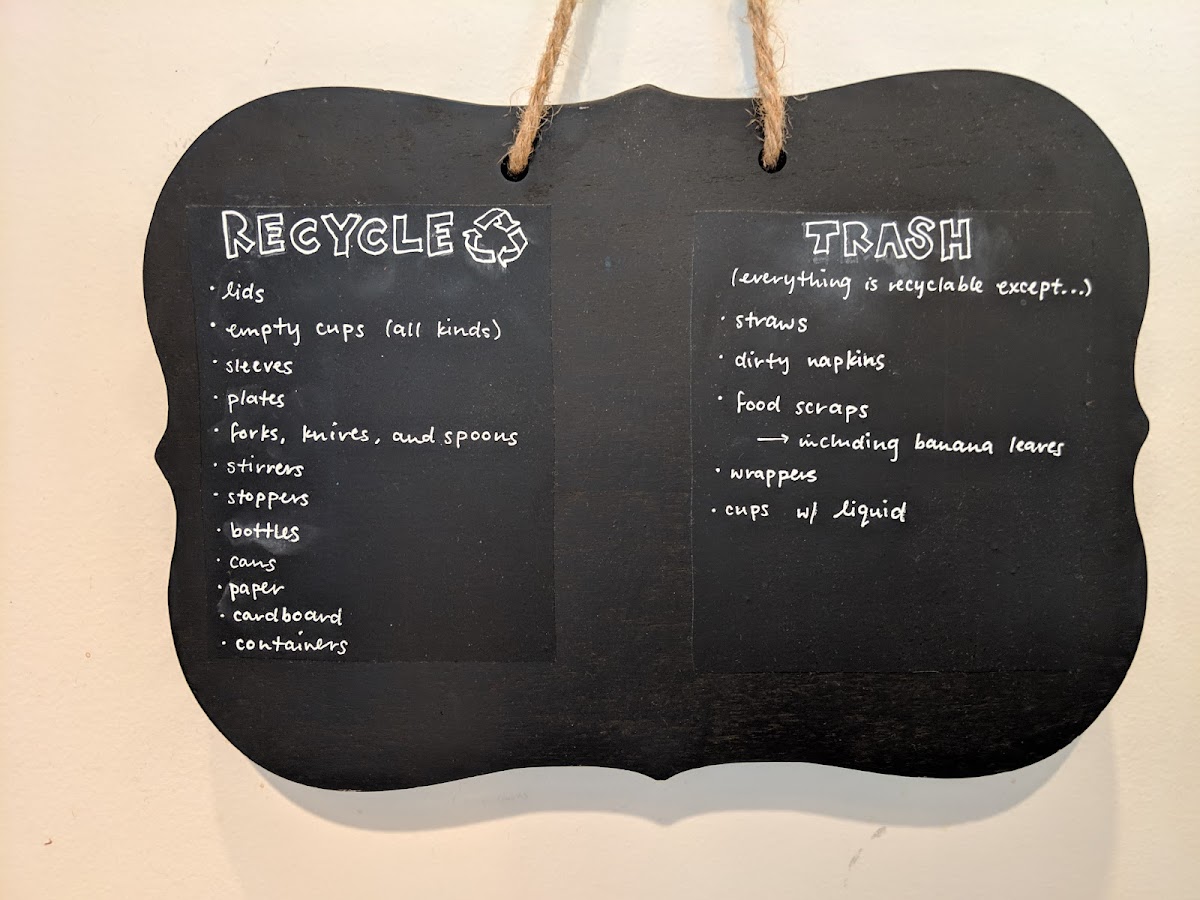 RECYCLE
• lids
• empty cups (all kinds)
• sleeves
• plates
• forks, knives, and spoons
• stirrers
• stoppers
• bottles
• cans
• paper
• cardboard
• containers
TRASH
(everything is recyclable except...)
• straws
• dirty napkins
• food scraps
→ including banana leaves
• wrappers
• cups w/ liquid